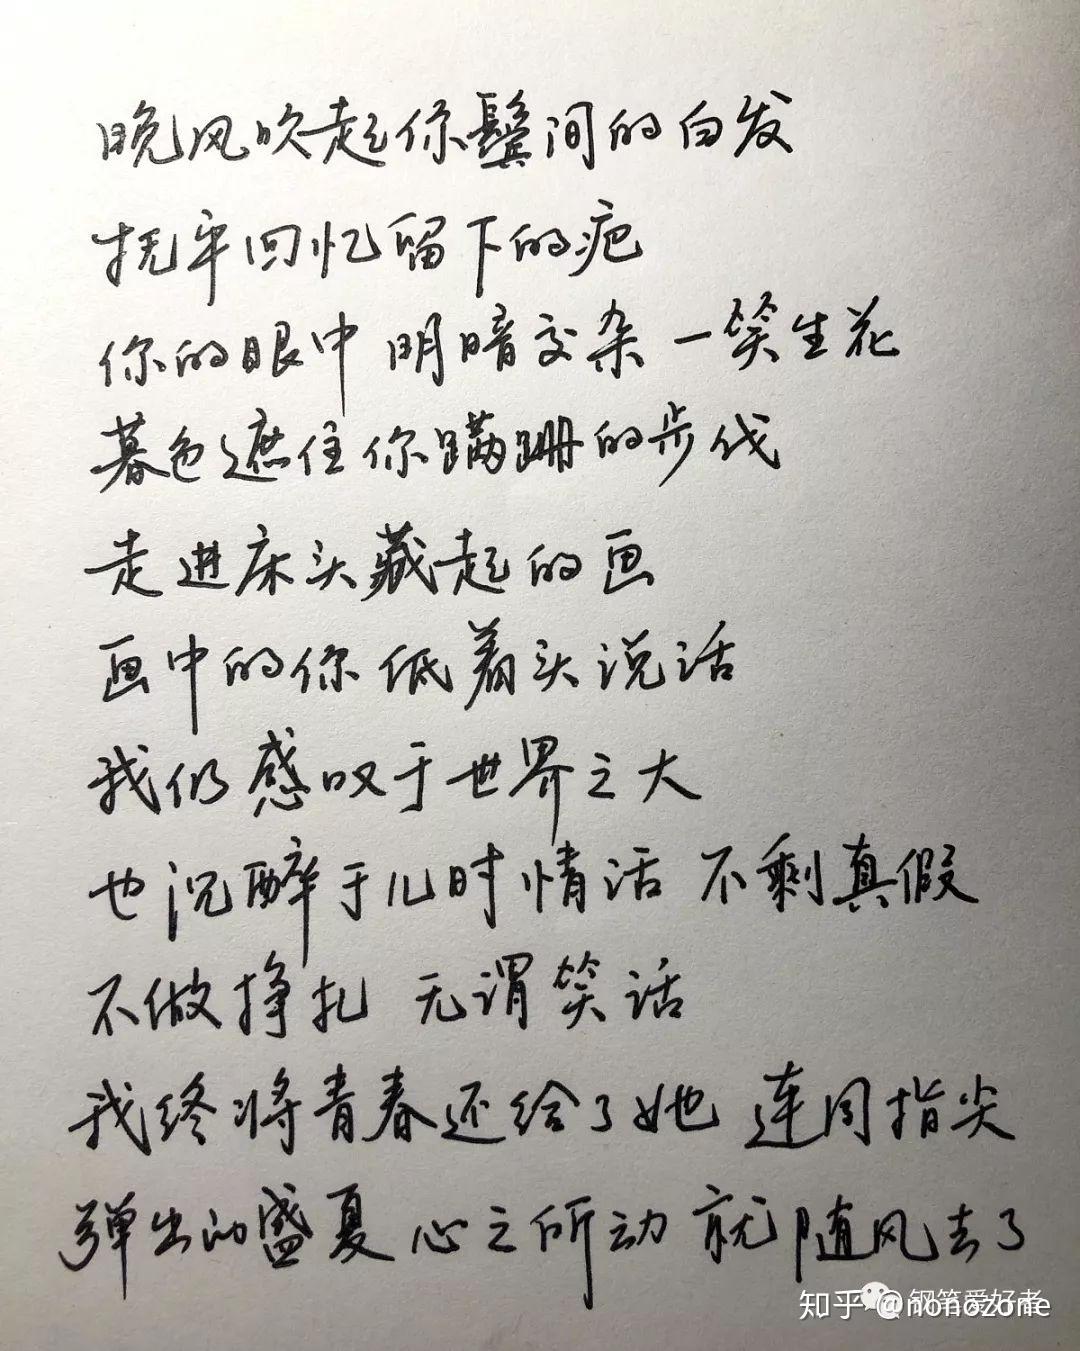 晚风吹起你鬓间的白发
抚平回忆留下的疤
你的眼中 明暗交杂 一笑生花
暮色遮住你蹒跚的步伐
走进床头藏起的画
画中的你 低着头说话
我仍感叹于世界之大
也沉醉于儿时情话 不剩真假
不做挣扎 无谓笑话
我终将青春还给了她 连同指尖
弹出的盛夏 心之所动 就随风去了
钢笔爱好者
知乎 @nonozone